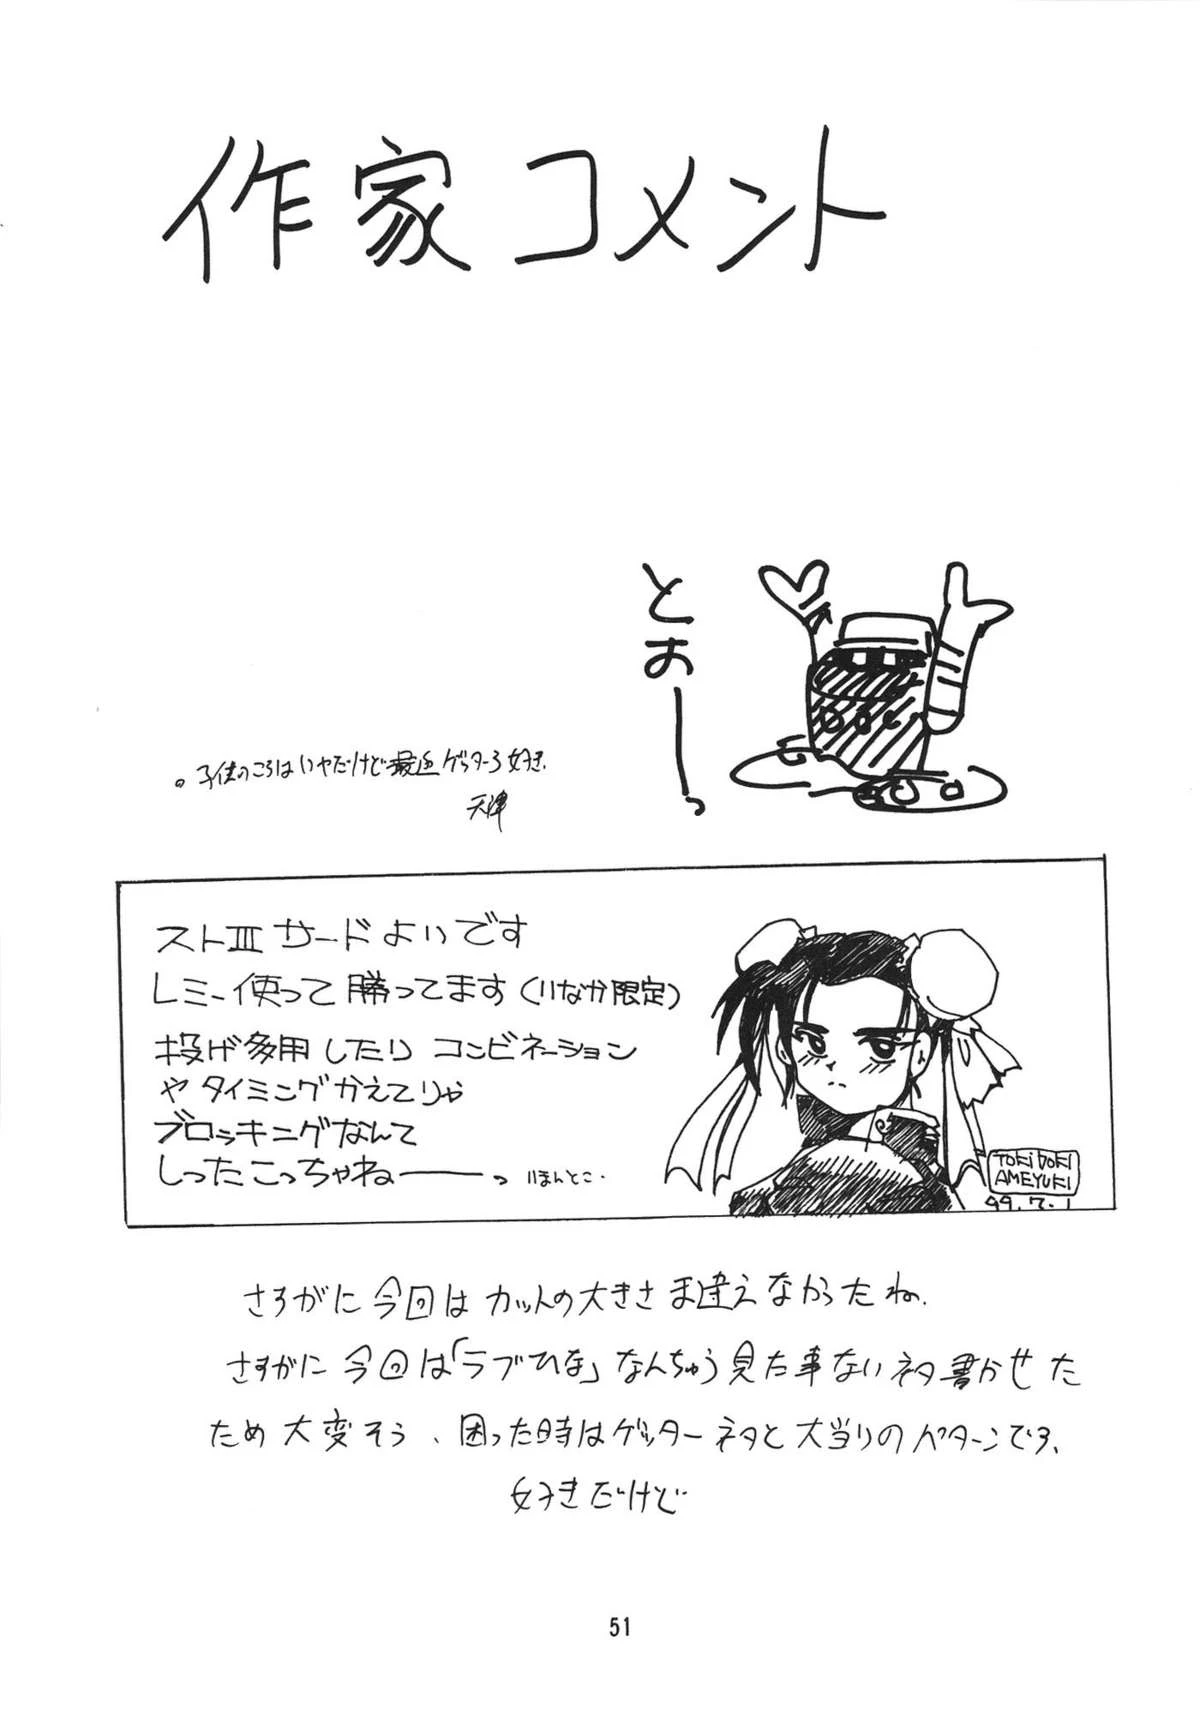 作家コメント
とおーっ
。子供のころはいやだけど最近ゲッター3好き.
天津
ストⅢ サードよいです
レミー使って勝ってます(いなか限定)
投げ多用したり コンビネーション
や タイミングかえてりゃ
ブロッキングなんて
しったこっちゃねーーっ
TOKIDOKI
AMEYUKI
99.7.1
さすがに今回はカットの大きさま違えなかったね.
さすがに今回は「ラブひな」なんちゅう見た事ないネタ書かせた
ため大変そう、困った時はゲッターネタと大当りのパターンです、
好きだけど
51